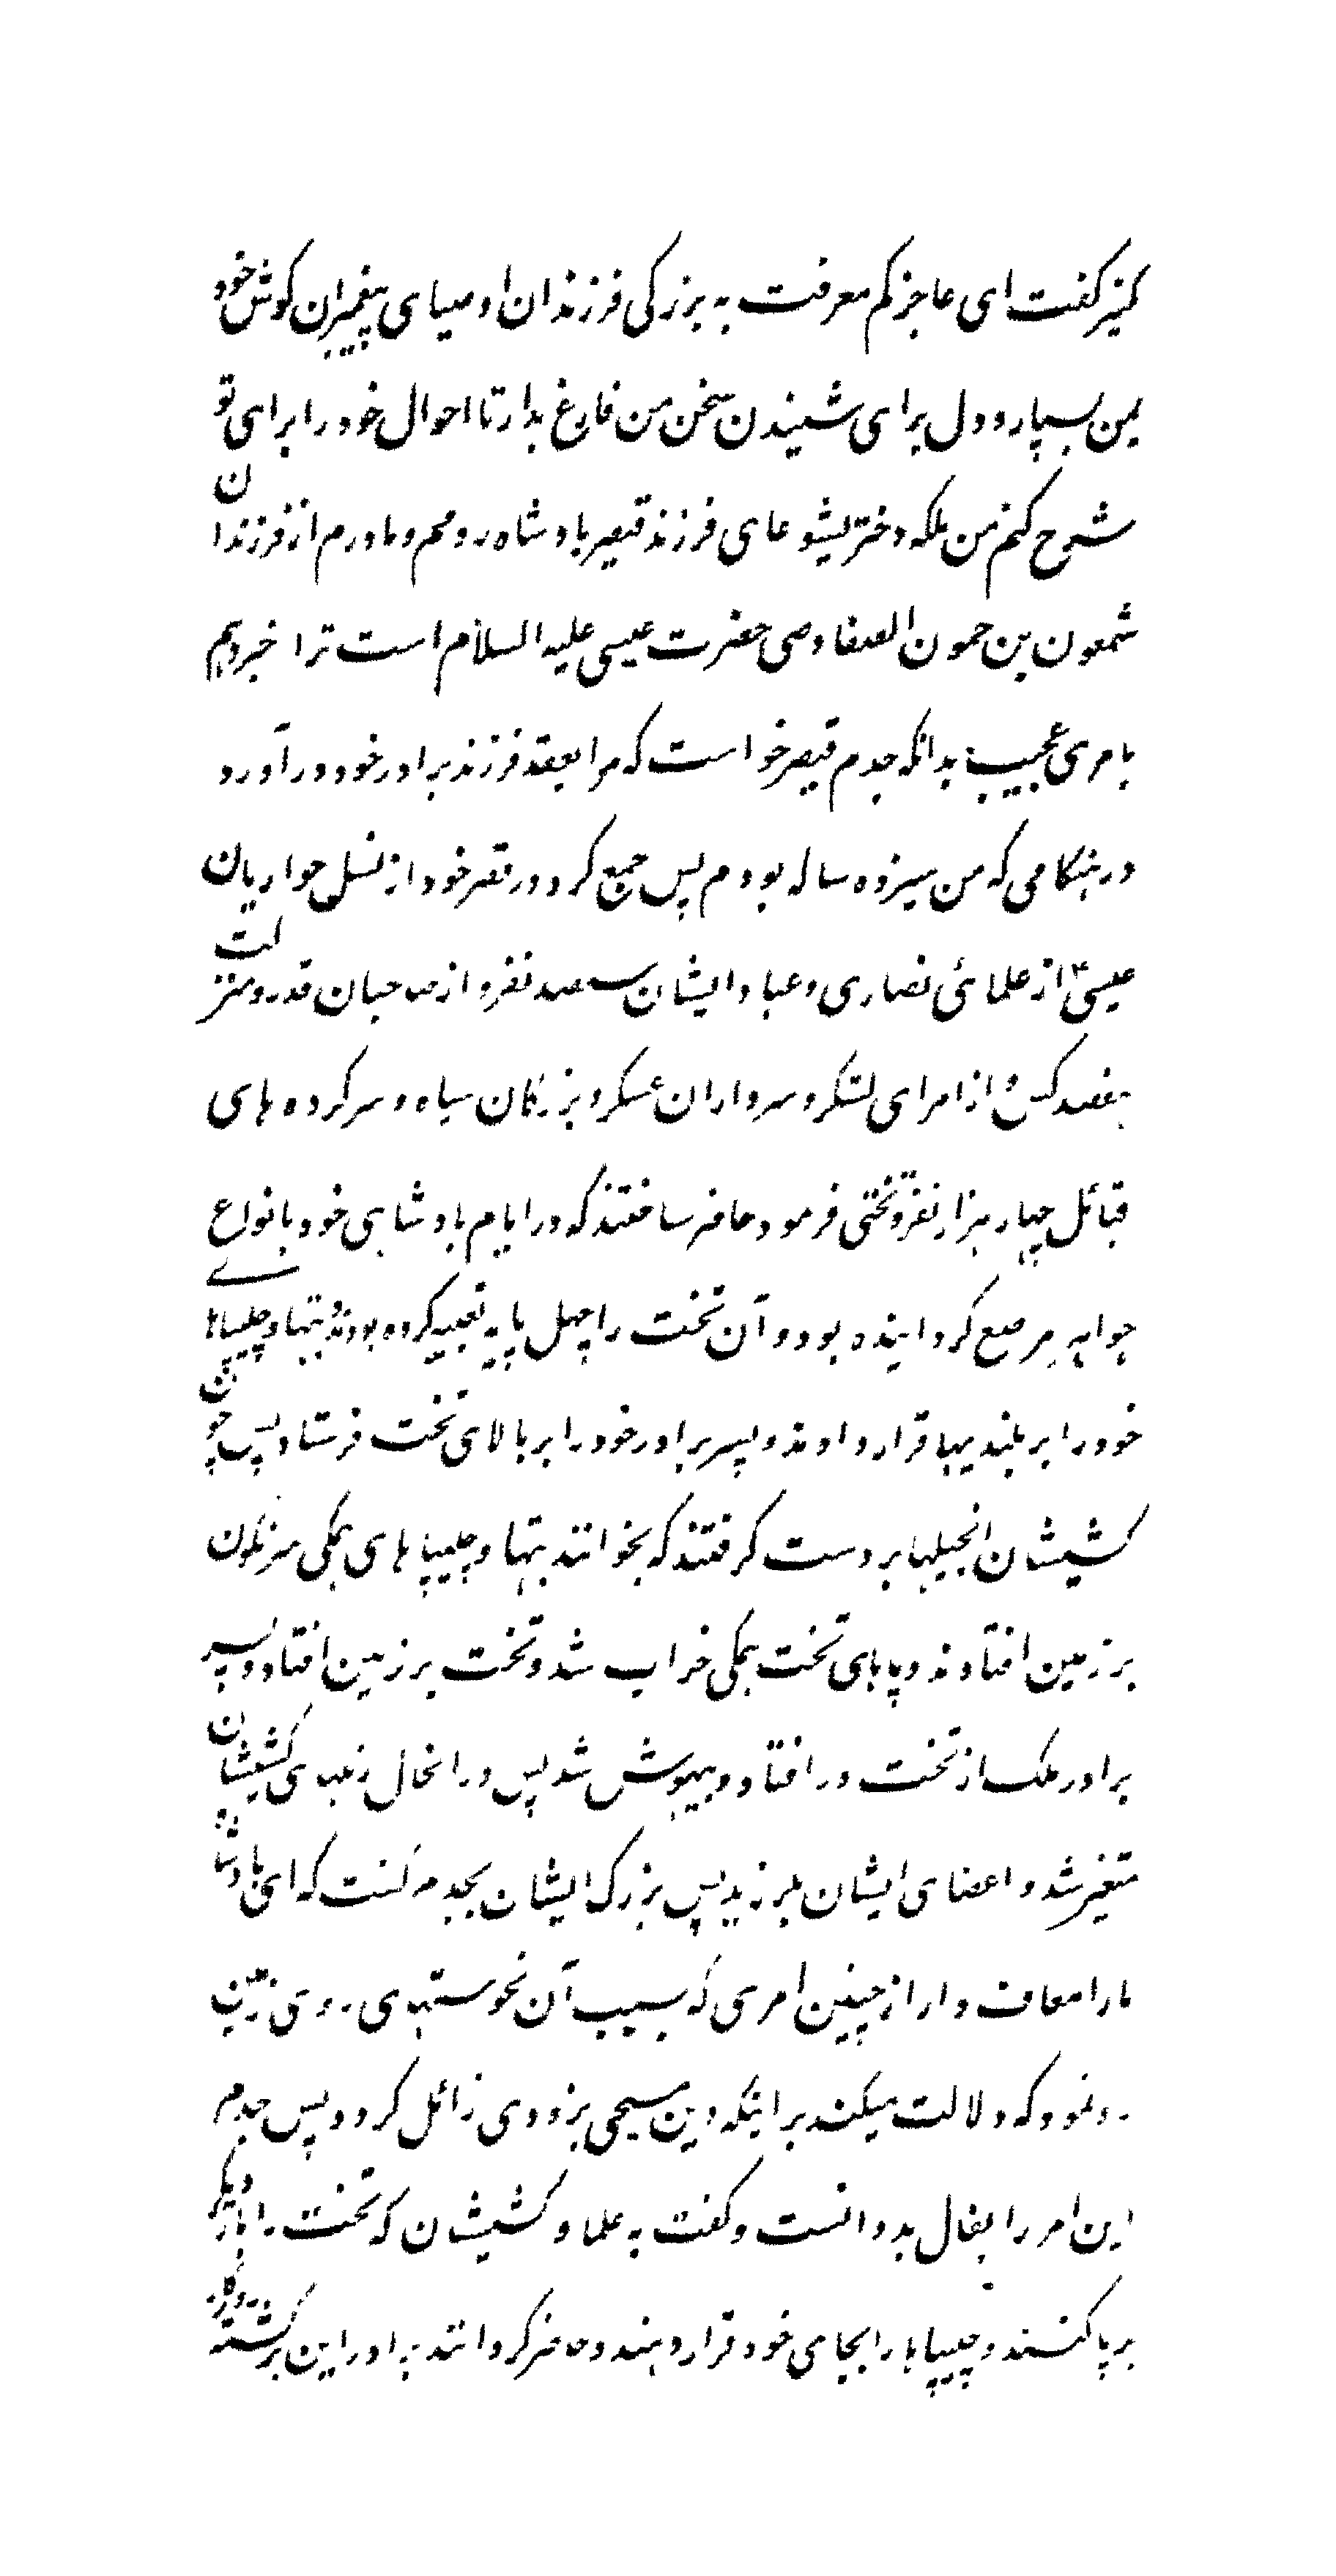 کنیز کفت ای عاجز کم معرفت به بزرکی فرزندان اوصیای پیغمبران کوش خود
بمن بسپار و دل برای شنیدن سخن من فارغ بدار تا احوال خود را برای تو
شرح کنم من ملکه دختر یشوعای فرزند قیصر بادشاه رومم و مادرم از فرزندان
شمعون بن حمون الصفا وصی حضرت عیسی علیه السلام است ترا خبر دهم
بامری عجیب بدانکه جدم قیصر خواست که مرا بعقد فرزند برادر خود در آورد
در هنکامی که من سیزده ساله بودم پس جمع کرد در قصر خود از نسل حواریان
عیسیؑ از علمائی نصاری و عباد ایشان سیصد نفر و از صاحبان قدر و منزلت
هفصد کس و از امرای لشکر و سرداران عسکر و بزرکان سپاه و سرکرده های
قبائل چهار هزار نفر و تختی فرمود حاضر ساختند که در ایام بادشاهی خود بانواع
جواهر مرصع کردانیده بود و آن تخت را چهل پایه تعبیه کرده بودند و بتها و چلیپاهای
خود را بر بلندیها قرار دادند و پسر برادر خود را بر بالای تخت فرستاد پس چون
کشیشان انجیلها بر دست کرفتند که بخوانند بتها و چلیپا های بمکی سرنکون
بر زمین افتادند و پاهای تخت بمکی خراب شد و تخت بر زمین افتاد و پسر
برادر ملک از تخت در افتاد و بیهوش شد پس در انحال رنکهای کشیشان
متغیر شد و اعضای ایشان بلرزید پس بزرک ایشان بجدم کفت که ای بادشاه
ما را معاف دار از چنین امری که بسبب آن نحوستهای روی زمین
رو نمود که دلالت میکند بر اینکه دین مسیحی بزودی زائل کردد پس جدم
این امر را بفال بد دانست و کفت به علما و کشیشان که تخت را بار دیکر
بر پا کنند و چلیپاها را بجای خود قرار دهند و حاضر کردانند برادر این برکشته روزکار